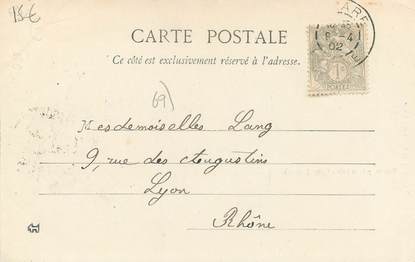 15€
CARTE POSTALE
Ce côté est exclusivement réservé à l'adresse.
69)
Mesdemoiselles Lang
9, rue des Augustins
Lyon
Rhône